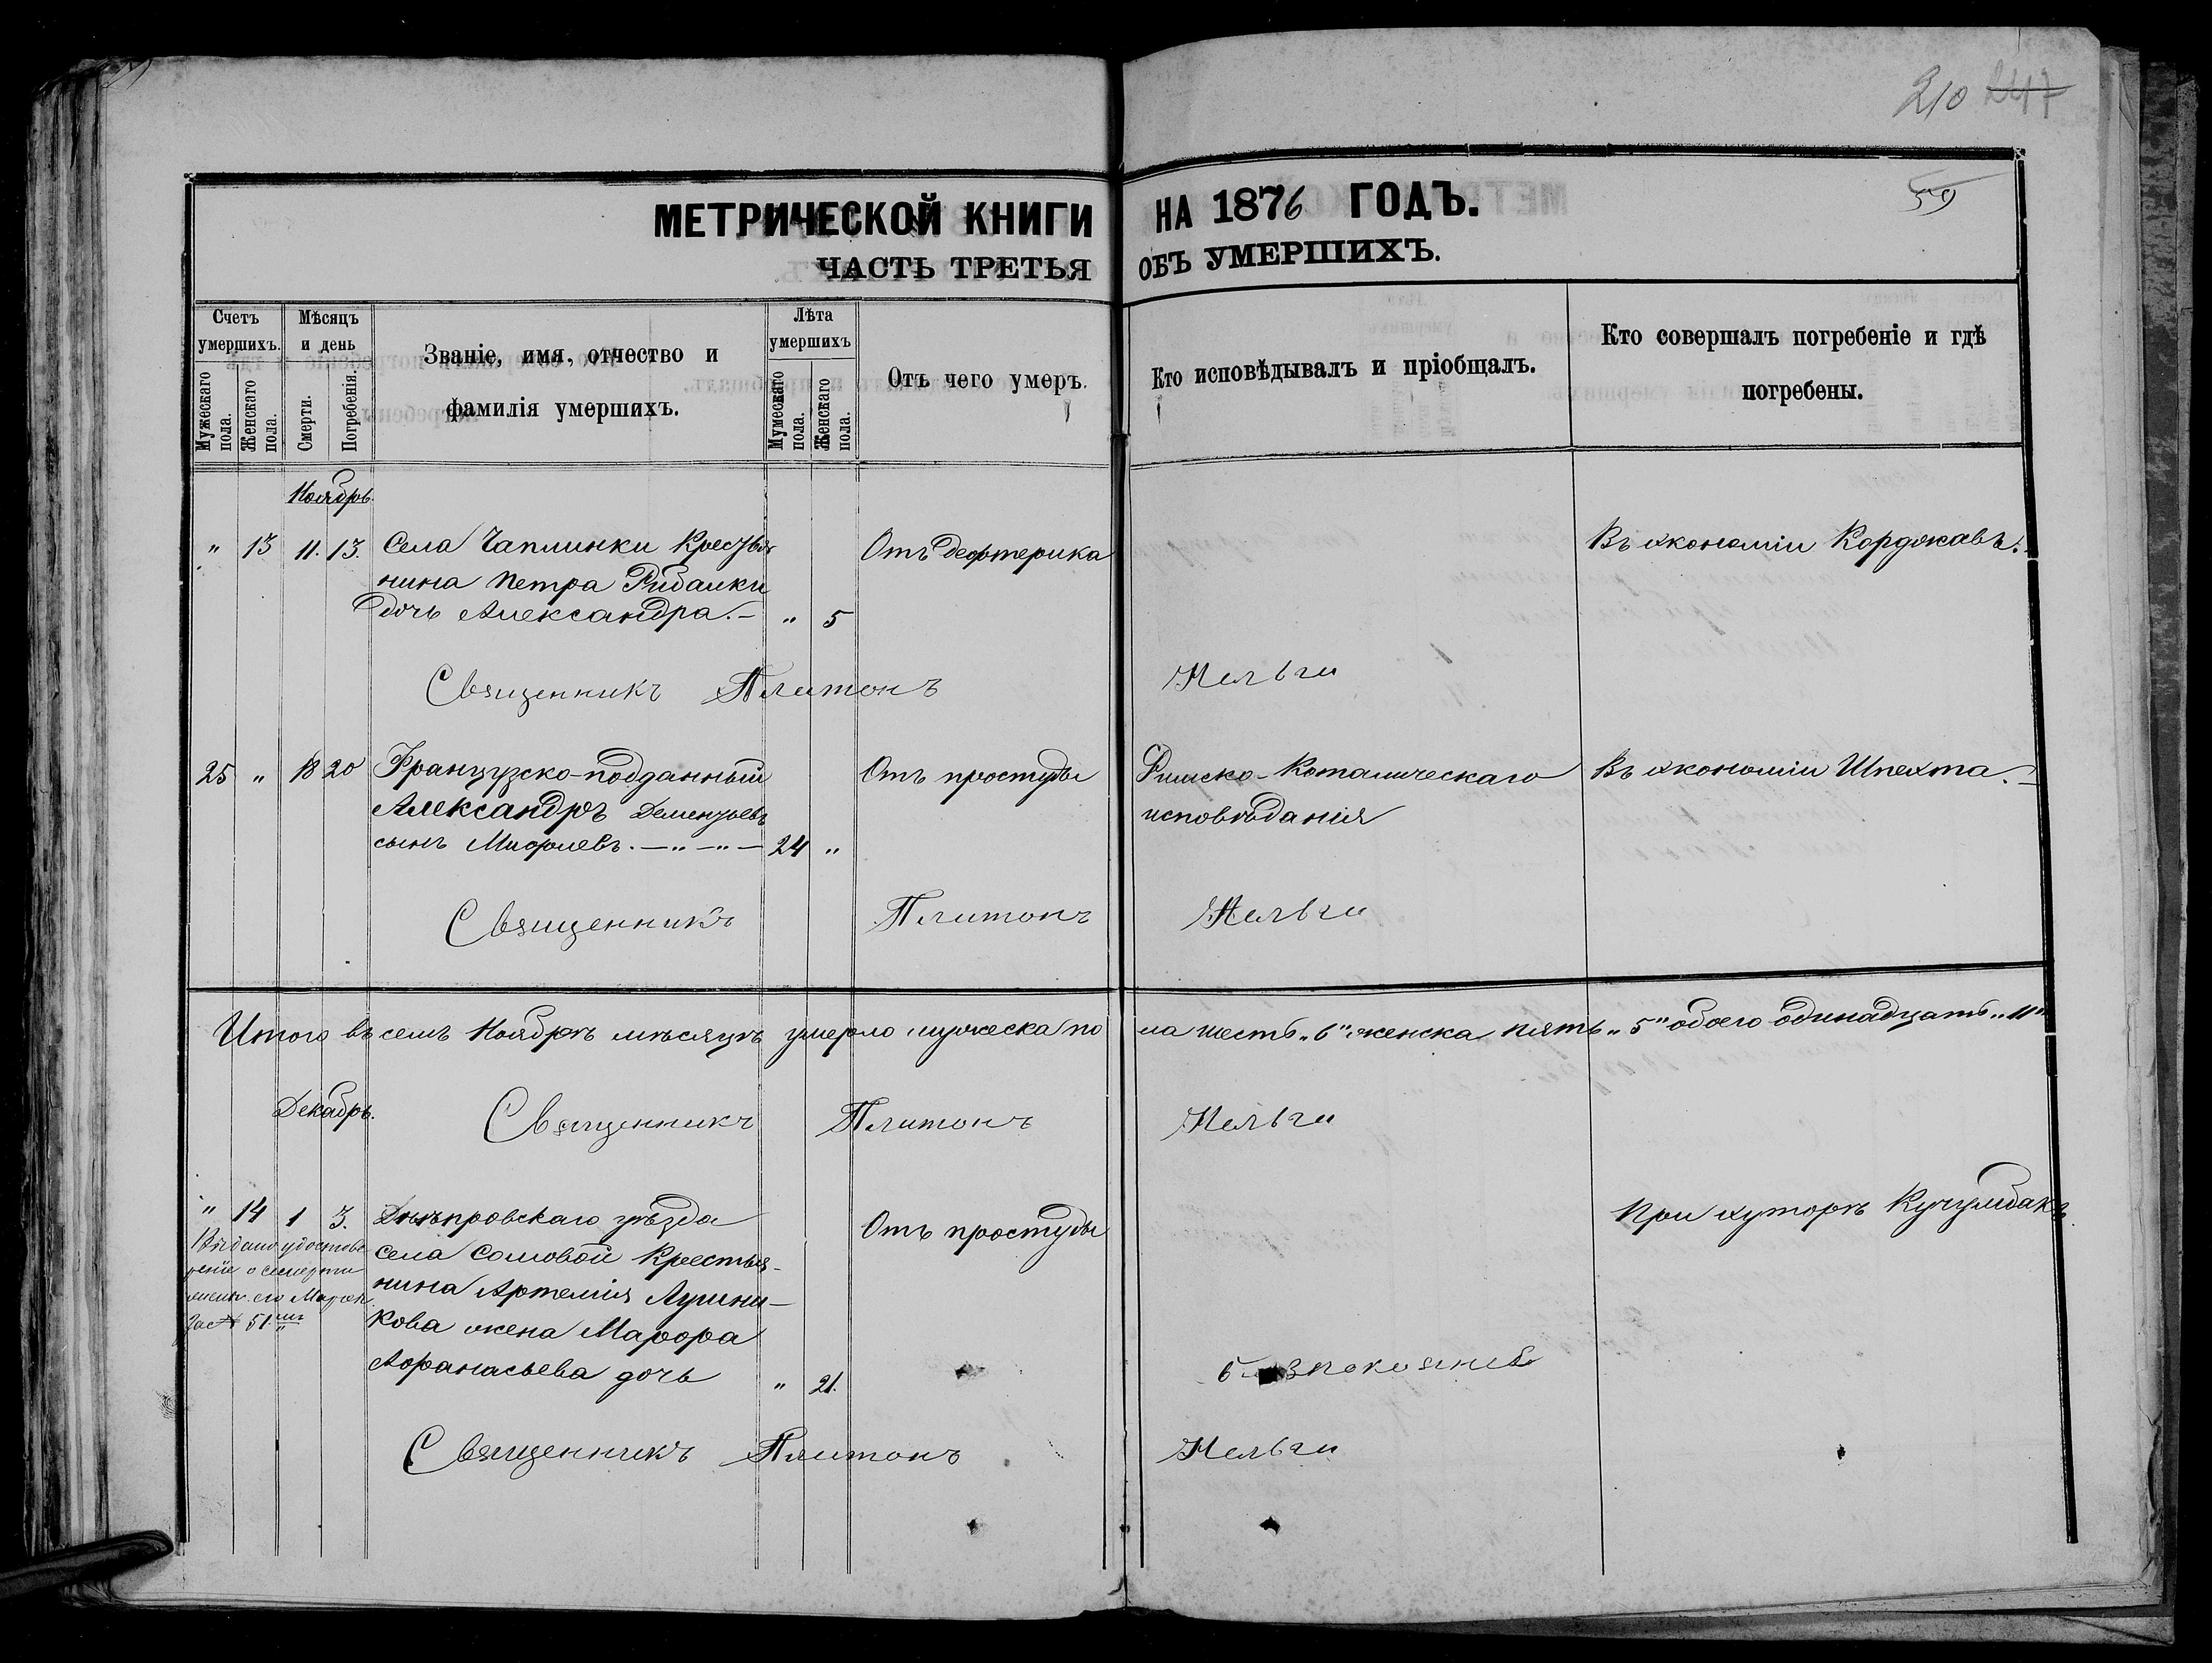 210 247
59
МЕТРИЧЕСКОЙ КНИГИ НА 1876 ГОДЪ.
ЧАСТЬ ТРЕТЬЯ ОБЪ УМЕРШИХЪ.
Счетъ умершихъ.
Мужескаго пола.
Женскаго пола.
Мѣсяцъ и день
Смерти.
Погребенія.
Званіе, имя, отчество и
фамилія умершихъ.
Лѣта умершихъ
Мужескаго пола.
Женскаго пола.
Отъ чего умеръ.
Кто исповѣдывалъ и пріобщалъ.
Кто совершалъ погребеніе и гдѣ
погребены.
Ноябрь.
" 13 11. 13. Села Чаплинки Крестья Отъ дефтерика Въ экономіи
нина Петра Рибалки
дочь Александра. — " 5
Священникъ Платонъ
25 " 18 20 Французско-подданный Отъ простуды Римско-Католическаго Въ экономіи Шпехта. —
Александръ Дементьевъ исповѣданія
сынъ — " — " — 24 "
Священникъ Платонъ
Итого въ семъ Ноябрѣ мѣсяцѣ умерло мужеска по ла шесть „6" женска пять „5" обоего одинадцать „11"
Декабрь.
Священникъ Платонъ
" 14 1 3. Днѣпровскаго уѣзда Отъ простуды При хуторѣ
села Крестья-
нина Артемія
кова жена Марфа
Афанасьева дочь " 21.
Выдано удостове
реніе о смерти
его
за № 51
Священникъ Платонъ